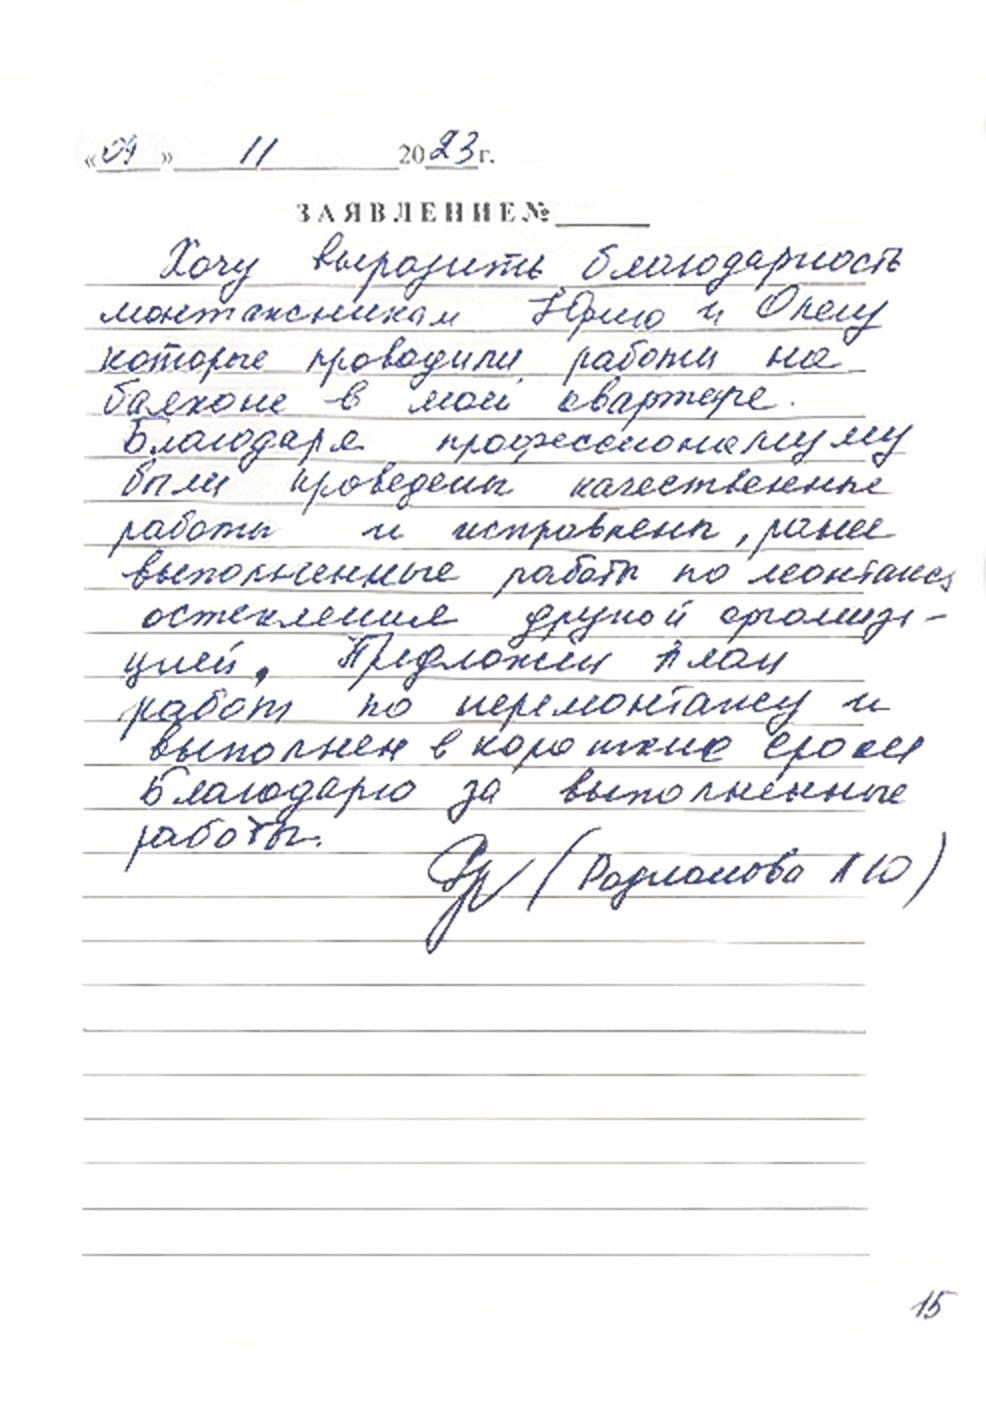 «09» 11 2023г.
ЗАЯВЛЕНИЕ№
Хочу выразить благодарность
монтажникам Юрию и Олегу
которые проводили работы на
балконе в моей квартире.
Благодаря профессионализму
были проведены качественные
работы и исправлены, ранее
выполненные работы по монтажу
остекления другой организа-
цией. Предложен план
работ по перемонтажу и
выполнен в короткие сроки
Благодарю за выполненные
работы.
(Радманова Л Ю)
15